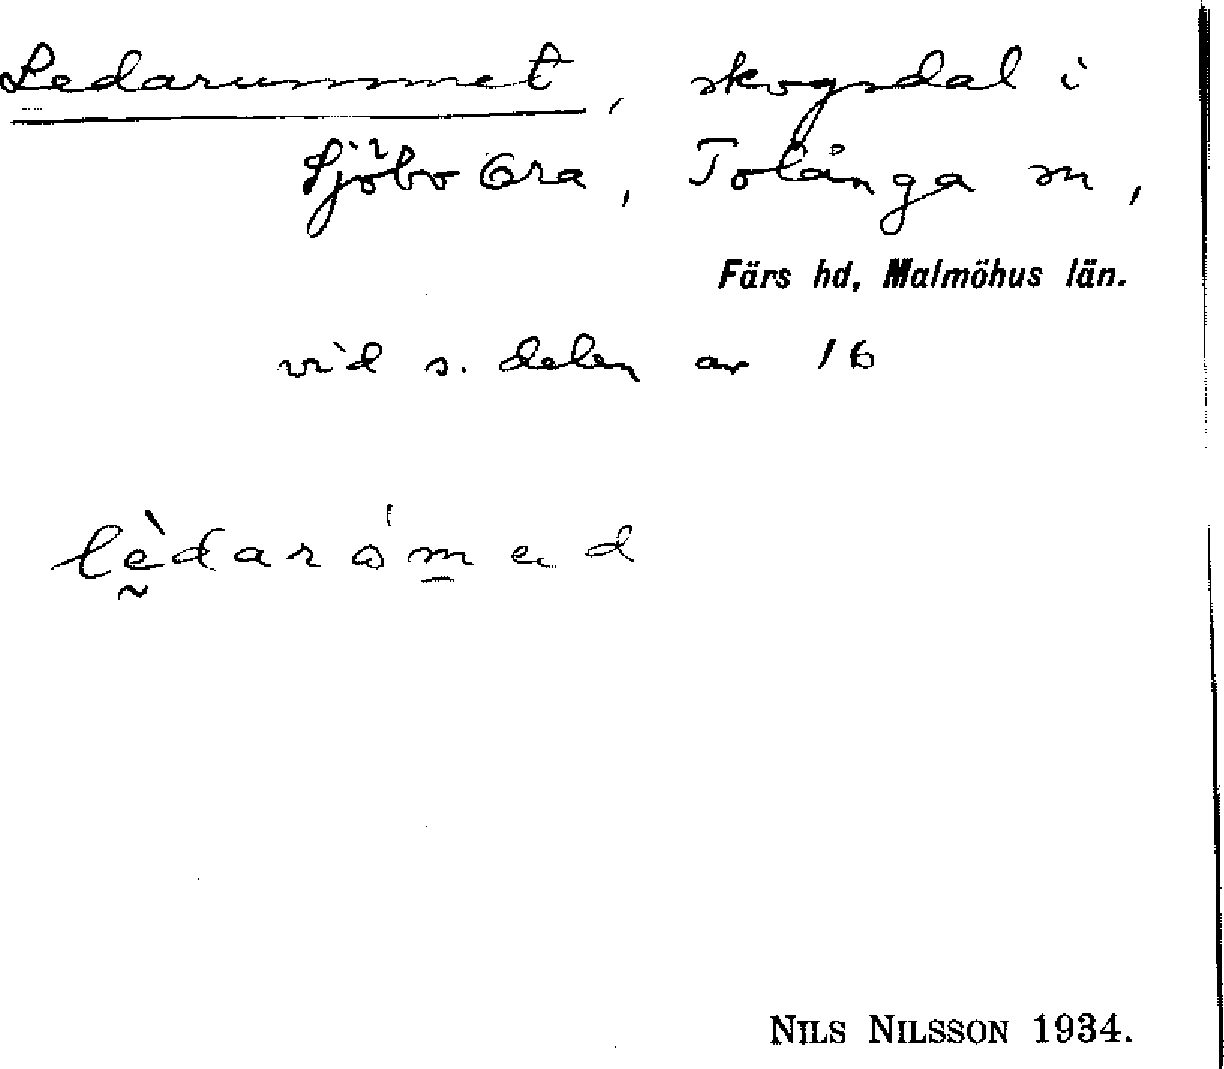 Ledarummet, skogsdal i
Sjöbo Ora, Tolånga sn,
Färs hd, Malmöhus län.
vid s. delen av 16
NILS NILSSON 1934.